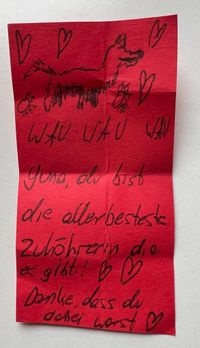 WAU WAU WAU
Yuna, du bist
die allerbesteste
Zuhöhrerin die
es gibt!
Danke, dass du
dabei warst